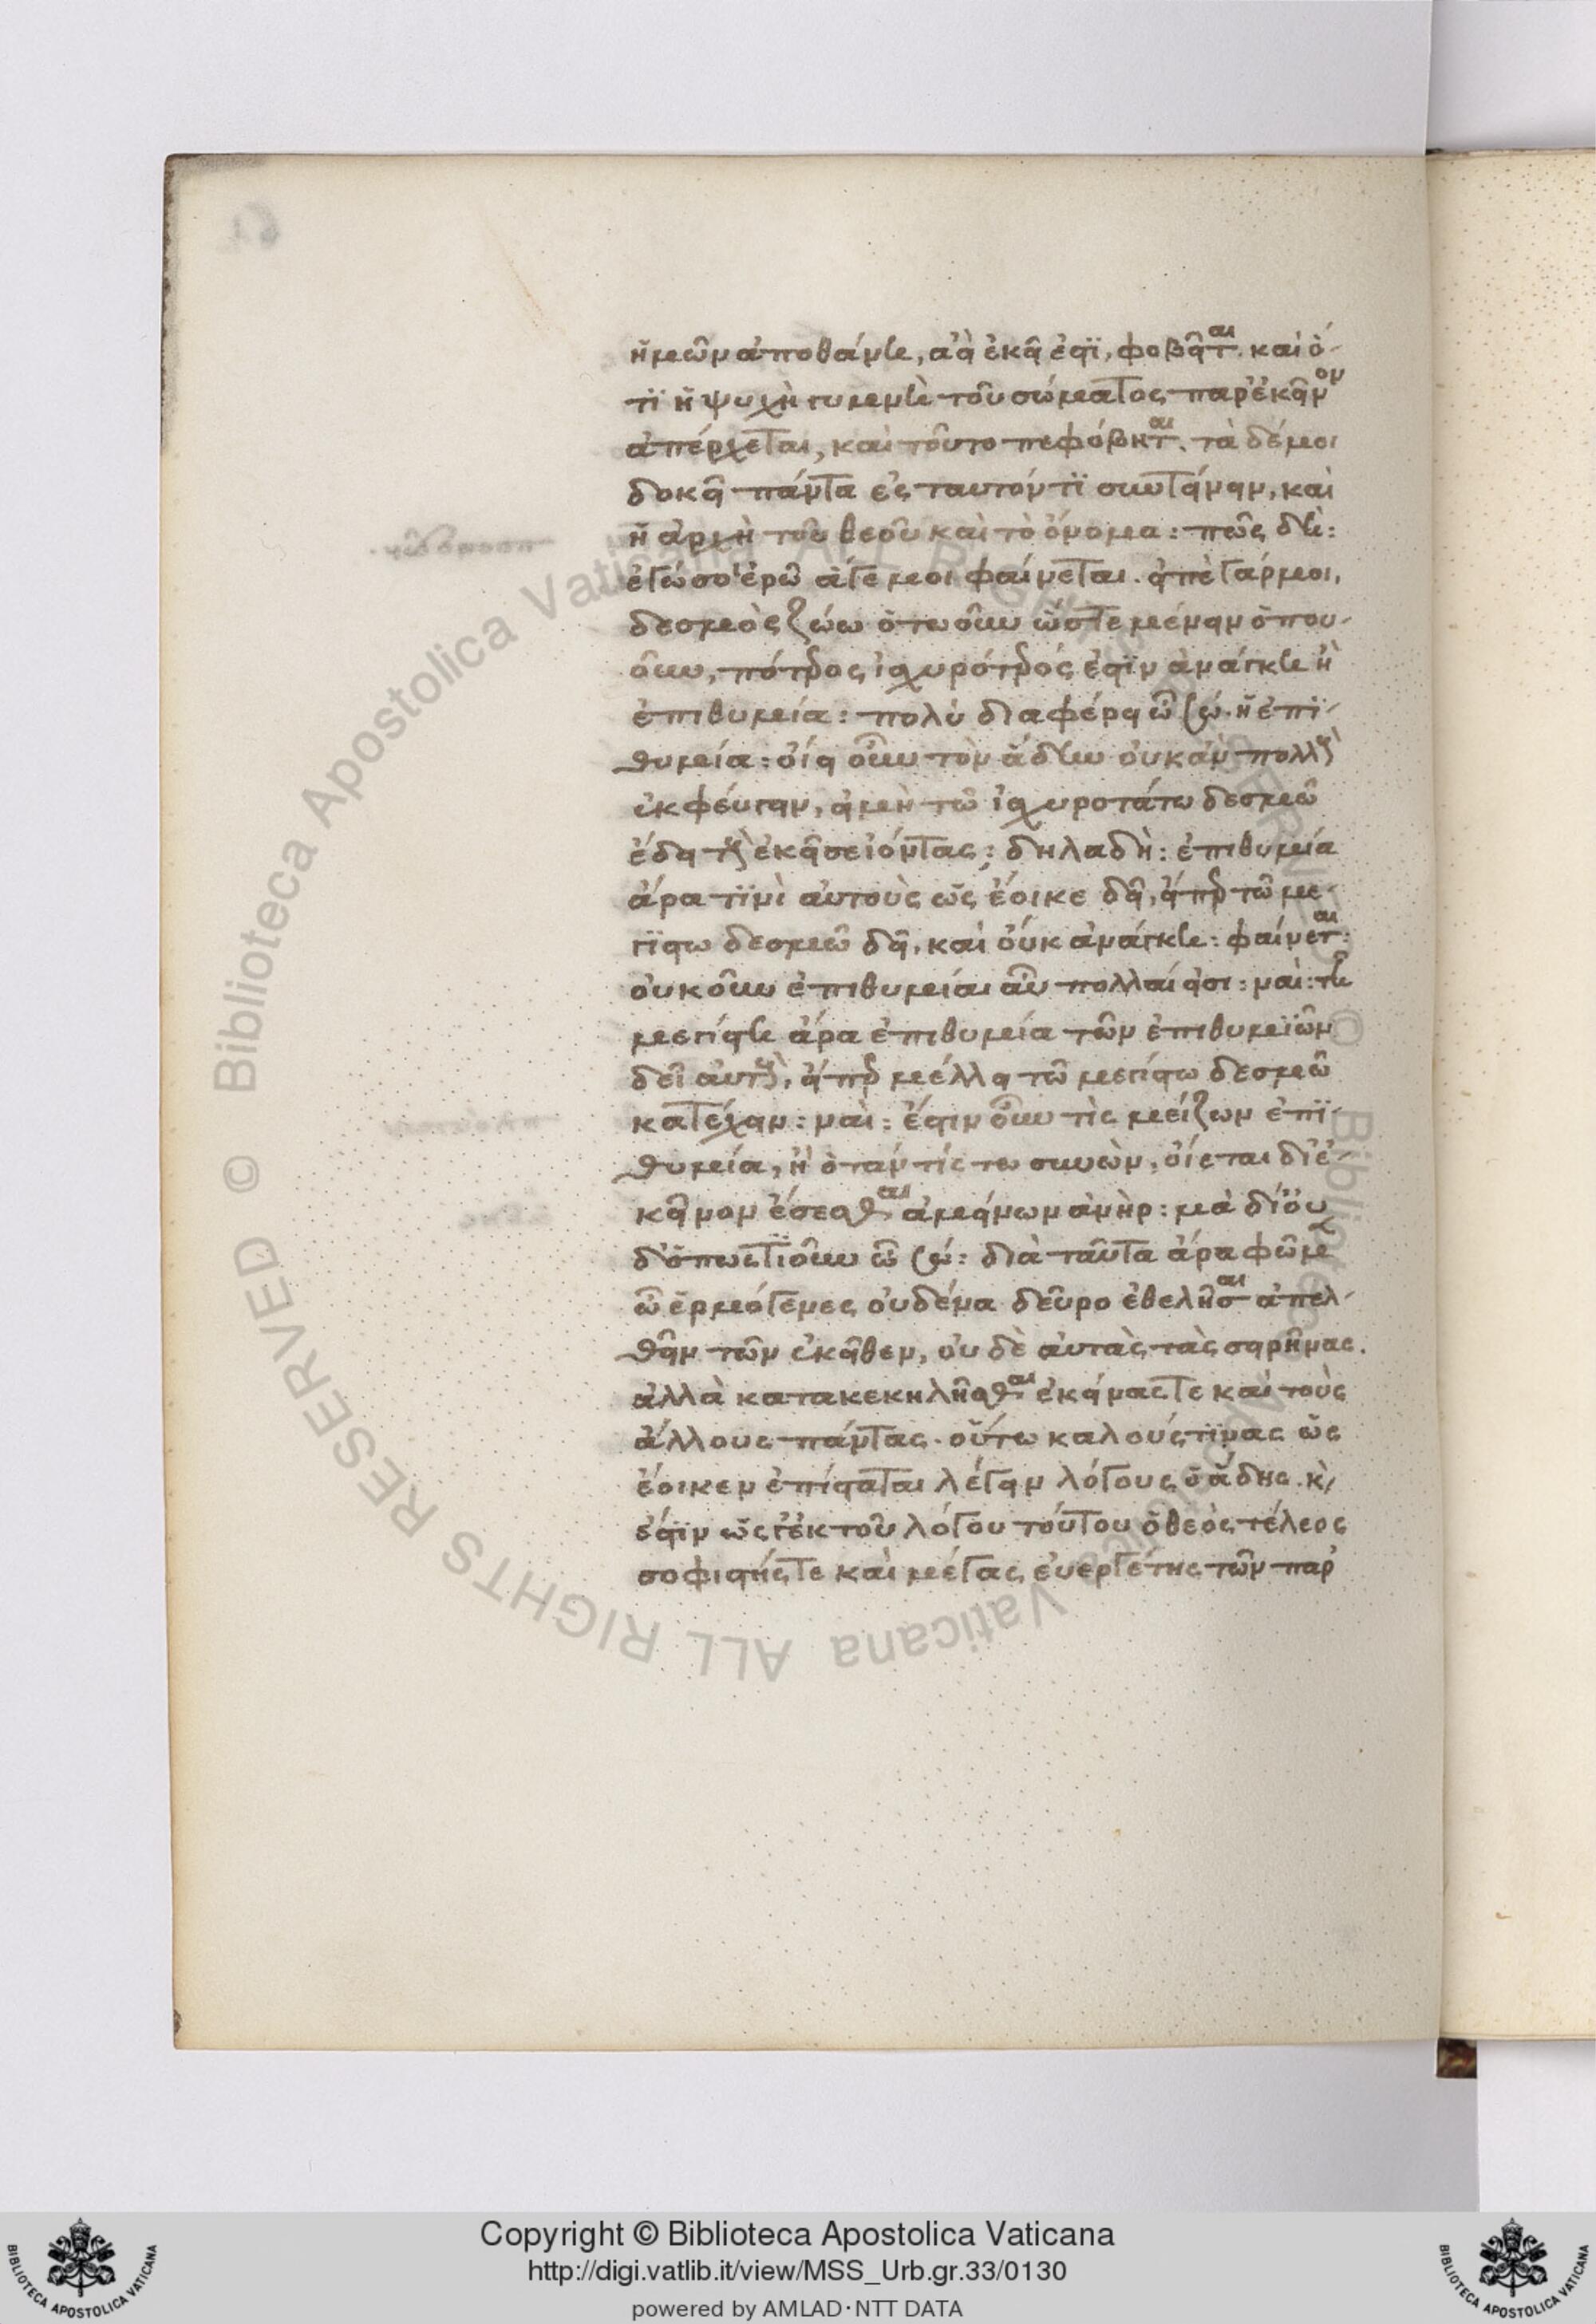 ἡμῶν ἀποθάνῃ, ἀεὶ ἐκεῖ ἐστὶ, φοβεῖται. καὶ ὅ-
τι ἡ ψυχὴ γυμνὴ τοῦ σώματος παρ' ἐκεῖνον
ἀπέρχεται, καὶ τοῦτο πεφόβηται. τὰ δέ μοι
δοκεῖ πάντα ἐς ταυτόν τι συντείνειν, καὶ
ἡ ἀρχὴ τοῦ θεοῦ καὶ τὸ ὄνομα: πῶς δή:
ἐγώ σοι ἐρῶ ἅ γέ μοι φαίνεται. εἰπὲ γάρ μοι,
δεσμὸς ζώῳ ὁτωοῦν ὥστε μένειν ὁπου-
οῦν, πότερος ἰσχυρότερός ἐστιν ἀνάγκη ἢ
ἐπιθυμία: πολὺ διαφέρει ὦ σώ. ἡ ἐπι-
θυμία: οἴει οὖν τὸν ἅδην οὐκ ἂν πολλοὺς
ἐκφεύγειν, εἰ μὴ τῷ ἰσχυροτάτῳ δεσμῷ
ἔδει τοὺς ἐκεῖσε ἰόντας; δηλαδή: ἐπιθυμίᾳ
ἄρα τινὶ αὐτοὺς ὡς ἔοικε δεῖ, εἴπερ τῷ με-
γίστῳ δεσμῷ δεῖ, καὶ οὐκ ἀνάγκῃ: φαίνεται:
οὐκοῦν ἐπιθυμίαι αὖ πολλαί εἰσι: ναί: τῇ
μεγίστῃ ἄρα ἐπιθυμίᾳ τῶν ἐπιθυμιῶν
δεῖ αὐτοὺς, εἴπερ μέλλει τῷ μεγίστῳ δεσμῷ
κατέχειν: ναί: ἔστιν οὖν τὶς μείζων ἐπι-
θυμία, ἢ ὅταν τίς τῳ συνὼν, οἴεται δι' ἐ-
κεῖνον ἔσεσθαι ἀμείνων ἀνήρ: μὰ δί' οὐ
δ' ὁπωστιοῦν ὦ σώ: διὰ ταῦτα ἄρα φῶμεν
ὦ ἑρμόγενες οὐδένα δεῦρο ἐθελῆσαι ἀπελ-
θεῖν τῶν ἐκεῖθεν, οὐδὲ αὐτὰς τὰς σειρῆνας.
ἀλλὰ κατακεκηλῆσθαι ἐκείνας τε καὶ τοὺς
ἄλλους πάντας. οὕτω καλούς τινας ὡς
ἔοικεν ἐπίσταται λέγειν λόγους ὁ ἅδης. κ̀
ἔστιν ὥς γ' ἐκ τοῦ λόγου τούτου ὁ θεὸς τέλεος
σοφιστής τε καὶ μέγας εὐεργέτης τῶν παρ'
Copyright © Biblioteca Apostolica Vaticana
http://digi.vatlib.it/view/MSS_Urb.gr.33/0130
powered by AMLAD·NTT DATA